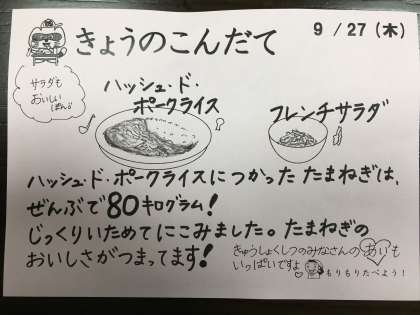 9/27(木)
きょうのこんだて
サラダも
おいしい
ハッシュ・ド・
ポークライス
フレンチサラダ
ハッシュ・ド・ポークライスにつかった たまねぎは、
ぜんぶで80キログラム!
じっくりいためてにこみました。たまねぎの
おいしさがつまってます!
きゅうしょくしつのみなさんの あいも
いっぱいですよ
もりもりたべよう!